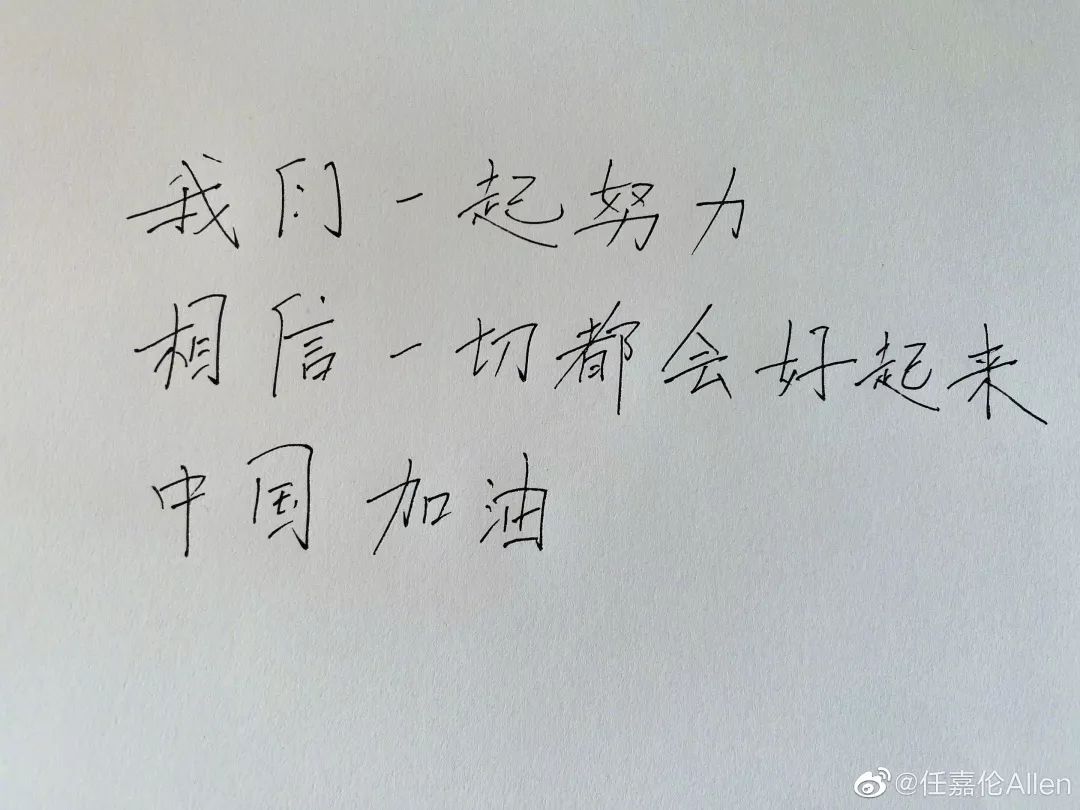 我们一起努力
相信一切都会好起来
中国加油
@任嘉伦Allen